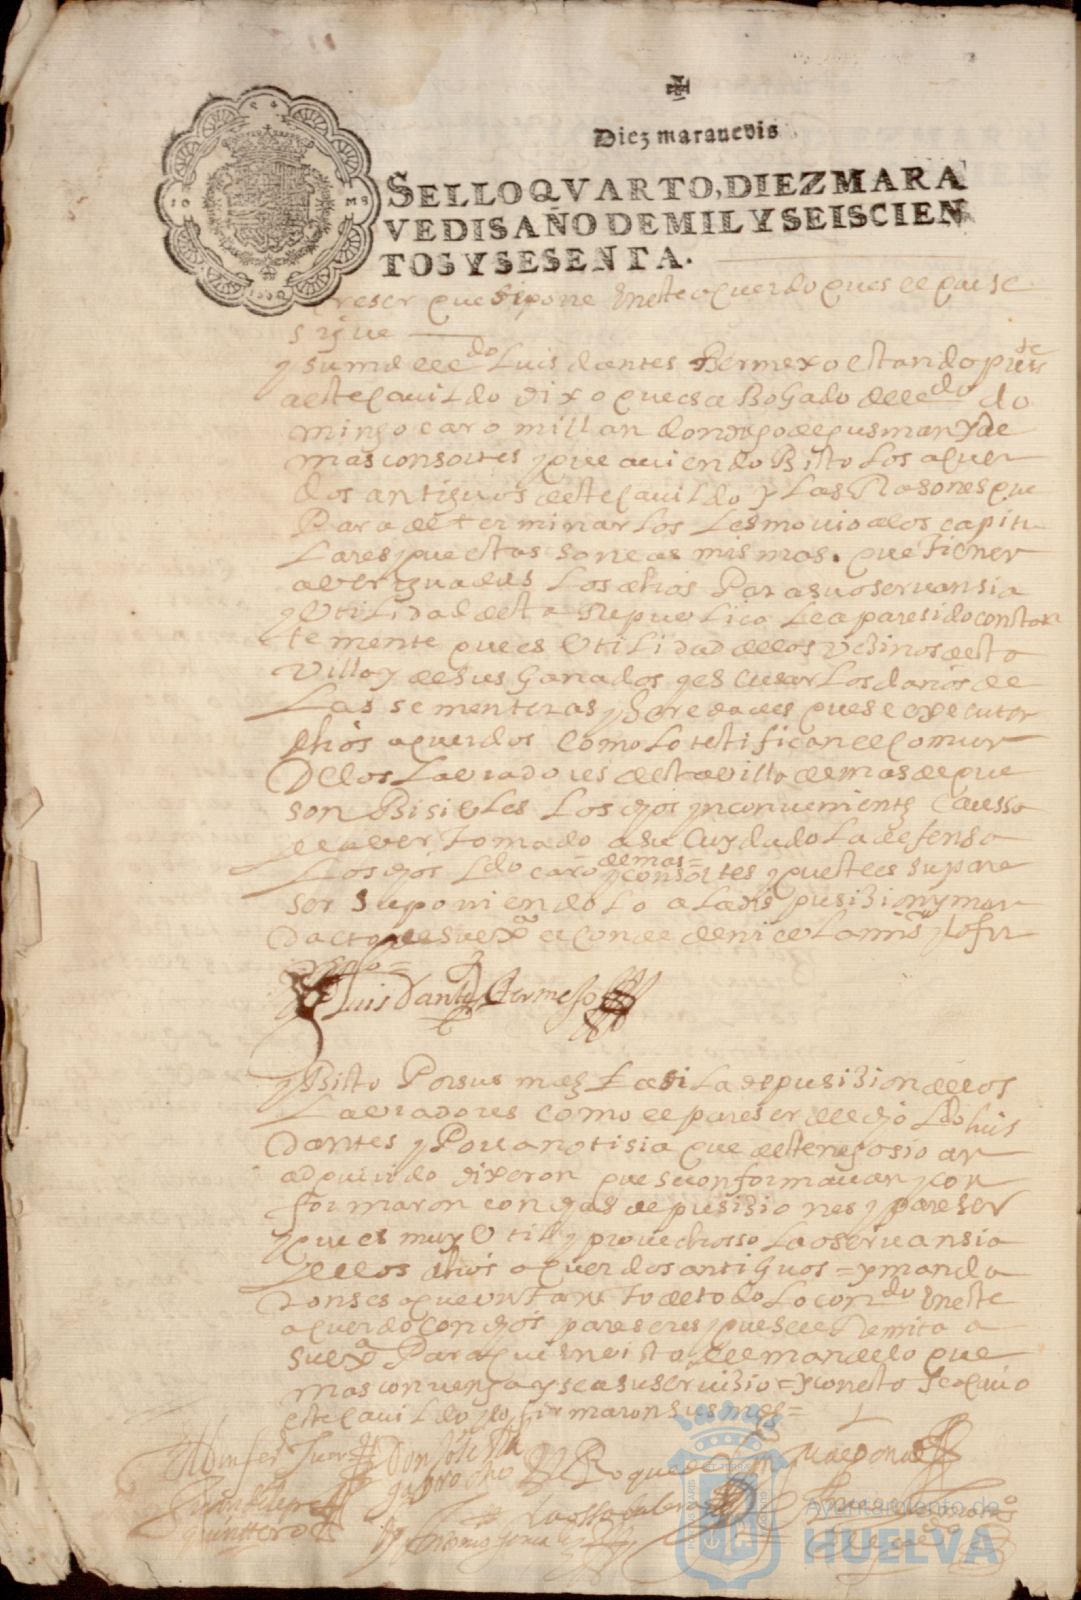 Diez maravedis
SELLO QVARTO, DIEZ MARA
VEDIS AÑO DE MIL Y SEISCIEN
TOS Y SESENTA.
pareser que se pone En este aquerdo que es el que se
sigue
y su md el ldo Luis dantes Bermexo estando presste
a este Cavildo dixo que es aBogado del ldo do
mingo caro millan don diego de gusman y de
mas consortes y que aviendo Bisto los aquer
dos antiguos deste Cavildo y Las Rasones que
Para determinarlos Les movio a los capitu
lares que estas son las mismas que tienen
averiguadas Los dhos Para su oservansia
y Utilidad desta Republica le a paresido constan
temente que es Utilidad de los vesinos desta
Villa y de sus ganados y escusar Los daños de
Las sementeras y Heredades que se executen
dhos aquerdos como lo testifican el comun
De los Labradores desta villa demas de que
son Bisibles Los dhos ynconvenientes Caussa
de aver tomado a su Cuydado La defensa
Los dhos Ldo caro y demas consortes y que este es su pare
ser suponiendolo a La disposision y man
dacto de su exa el conde de niebla mi sr y lo fir
mo =
Luis Dantes Bermejo
y Bisto Por sus mds La di La deposision de los
Labradores como el pareser del dho Ldo luis
Dantes y Por la notisia que deste negosio an
adquirido dixeron que se conformavan y con
formaron con dhas deposisiones y pareser
y que es muy Util y provechosso La oservansia
de los dhos aquerdos antiguos = y manda
ron se saque un tanto de todo Lo contdo En este
aquerdo con dhos pareseres y que se le Remita a
su exa Para que En vista del mande lo que
mas convenga y sea su servisio = y con esto se acavo
este Cavildo y lo firmaron sus mds =
Don Jose
Roque de
Juan
quintero
Antonio
Ayuntamiento de
HUELVA